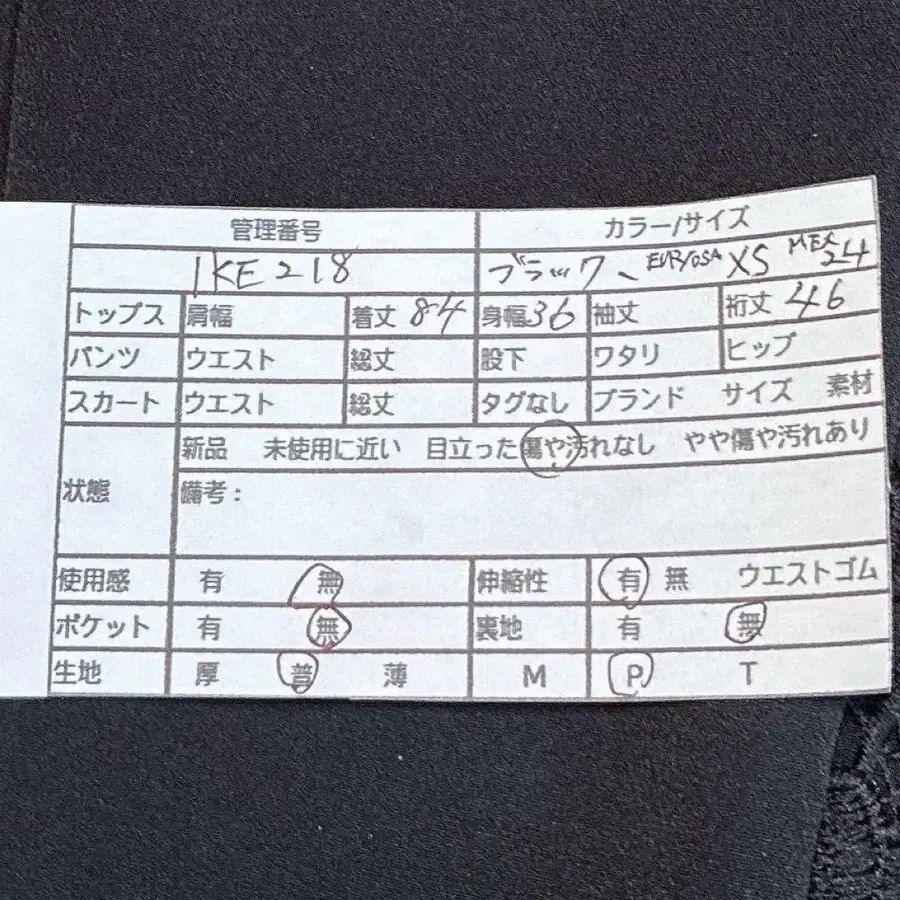 管理番号 カラー/サイズ
IKE218 ブラック、EUR/USA XS MEX 24
トップス 肩幅 着丈 84 身幅 36 袖丈 裄丈 46
パンツ ウエスト 総丈 股下 ワタリ ヒップ
スカート ウエスト 総丈 タグなし ブランド サイズ 素材
状態 新品 未使用に近い 目立った傷や汚れなし やや傷や汚れあり
備考:
使用感 有 無 伸縮性 有 無 ウエストゴム
ポケット 有 無 裏地 有 無
生地 厚 普 薄 M P T